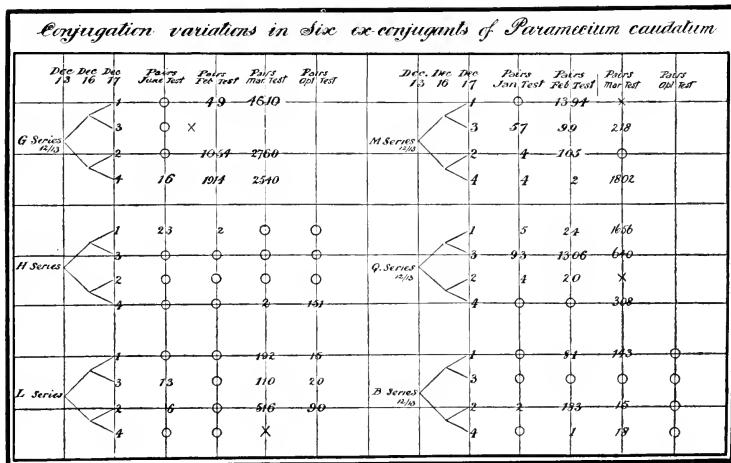 Conjugation variations in Six ex-conjugants of Paramecium caudatum
Dec 13 Dec 16 Dec 17 Pairs June Test Pairs Feb Test Pairs Mar. Test Pairs Apl Test
G Series 12/13
1 O 49 4610
3 O X
2 O 1054 2760
4 16 1914 2540
H Series
1 23 2 O O
3 O O O O
2 O O O O
4 O O 2 151
L Series
1 O O 192 15
3 73 O 110 20
2 6 O 516 90
4 O O X
Dec. 13 Dec 16 Dec 17 Pairs Jan Test Pairs Feb Test Pairs Mar Test Pairs Apl Test
M Series 12/13
1 O 1394 X
3 57 99 218
2 4 105 O
4 4 2 1802
Q. Series 12/13
1 5 24 1656
3 93 1306 640
2 4 20 X
4 O O 308
B Series 12/13
1 O 81 143 O
3 O O O O
2 2 133 15 O
4 O 1 18 O